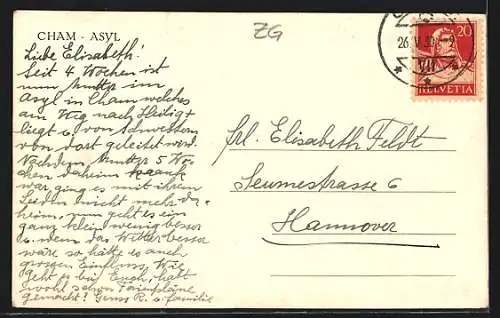 CHAM - ASYL
ZG
Liebe Elisabeth!
Seit 4 Wochen ist
nun Mutter im
Asyl in Cham welches
am Weg nach Heilig+
liegt u. von Schwestern
von dort geleitet wird.
Nachdem Mutter 5 Wo-
chen daheim krank
war, ging es mit ihrem
Leiden nicht mehr da-
heim, nun geht es ein
ganz klein wenig besser
u. wenn das Wetter besser
wäre so hätte es auch
grossen Einfluss. Wie
geht es bei Euch, habt
wohl schon Ferienpläne
gemacht? Gruss R. u. Familie
26. V. 30
VII
20
HELVETIA
Frl. Elisabeth Feldt
Seumestrasse 6
Hannover